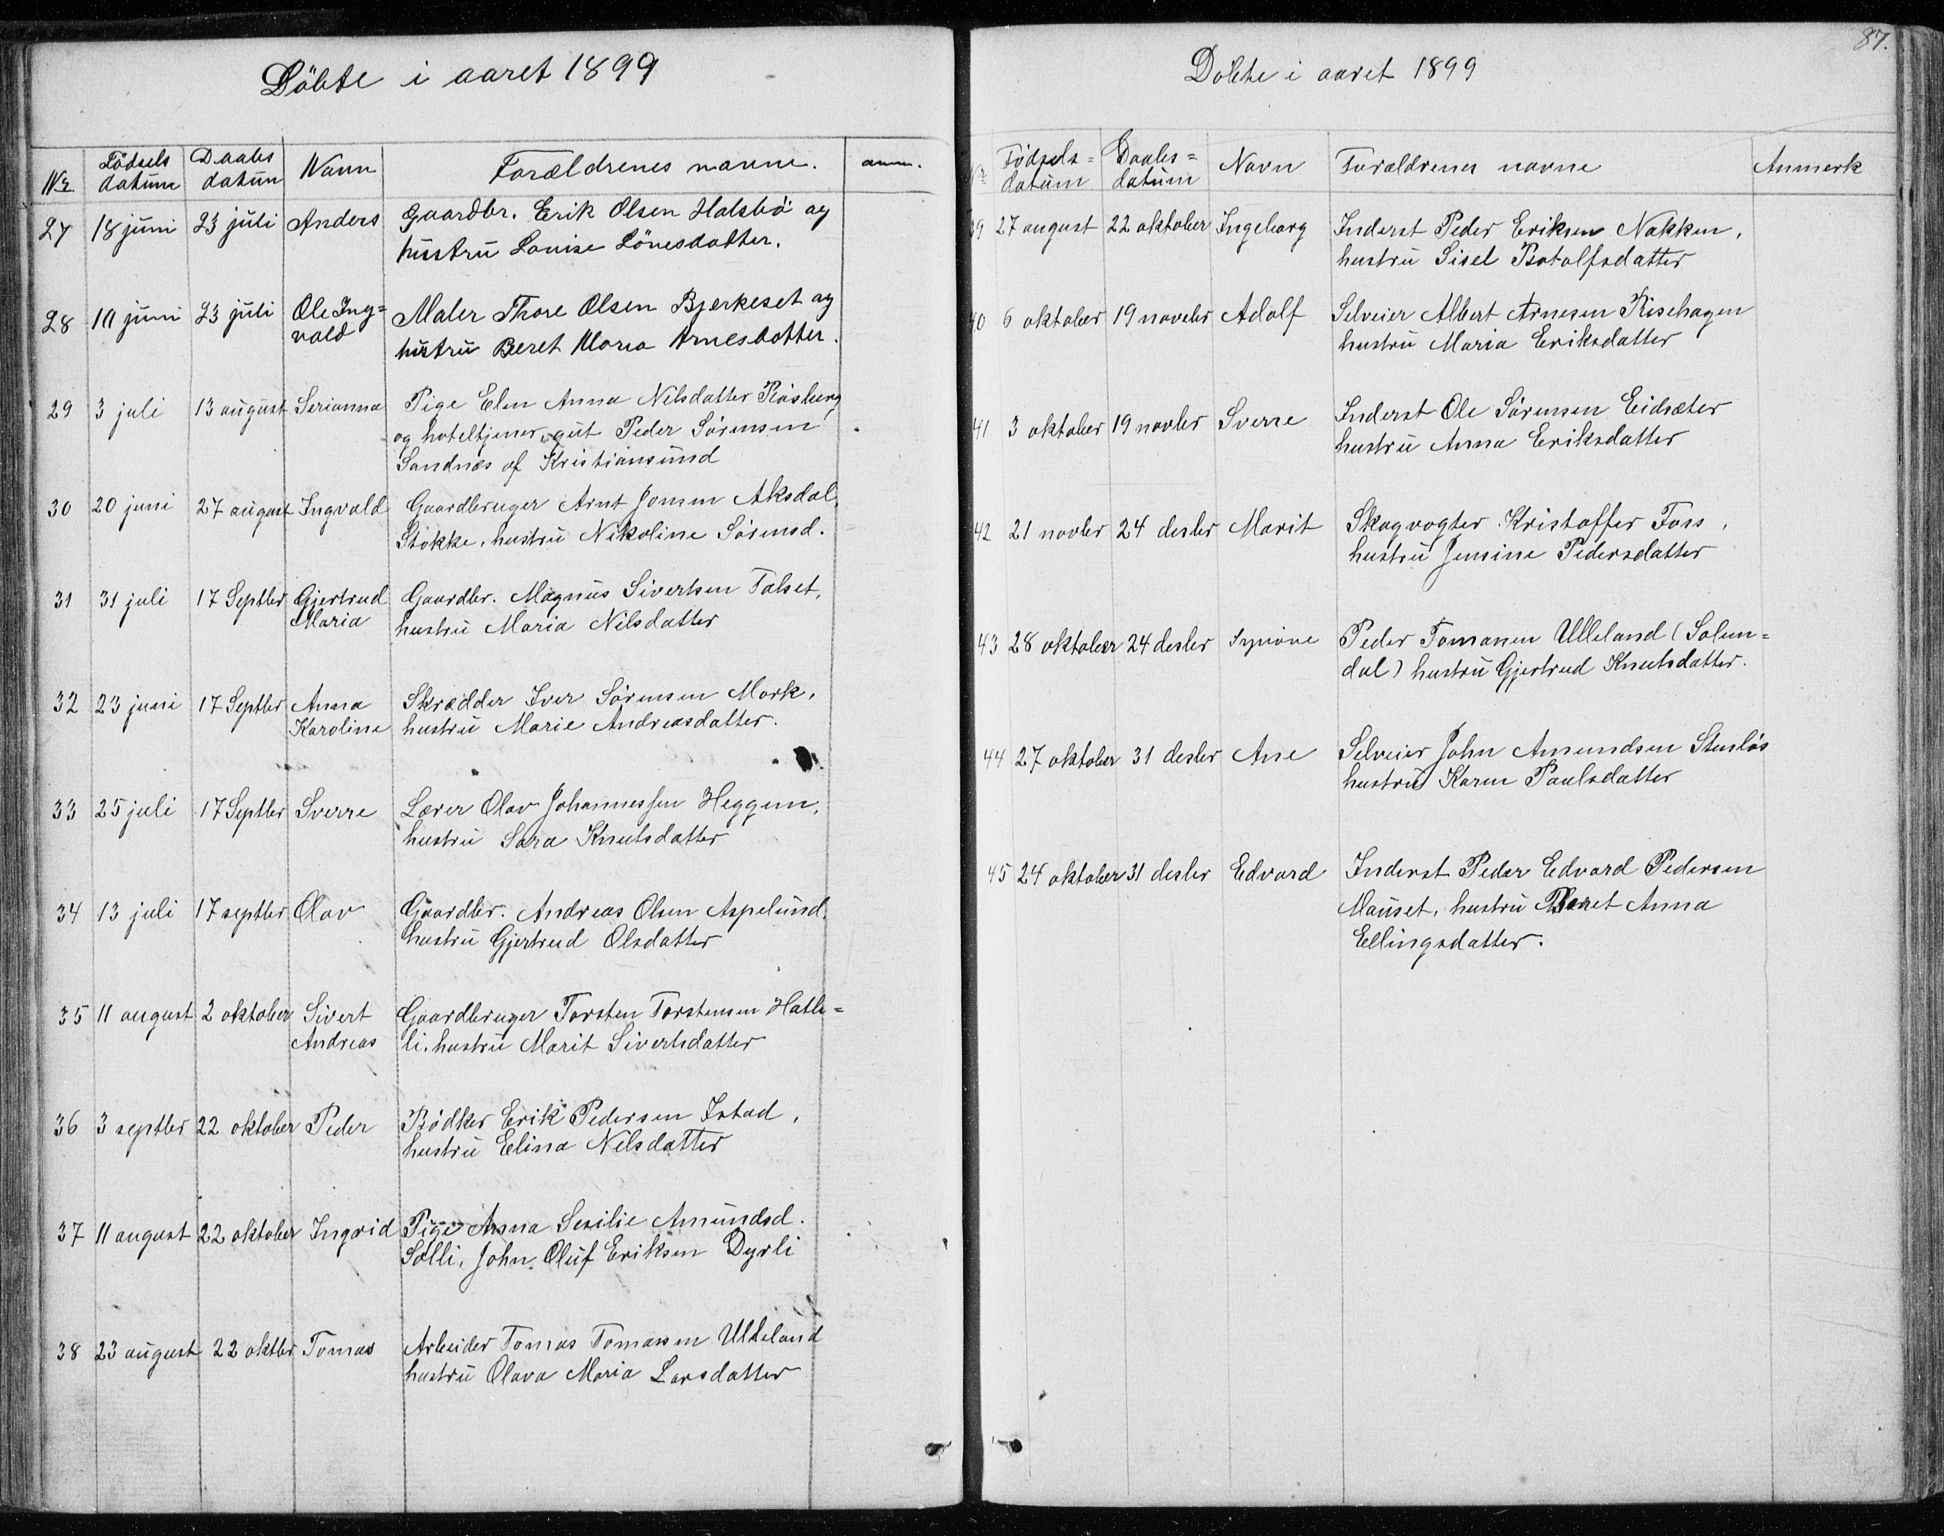 Döbte i aaret 1899
Nr. Födsels datum Daabs datum Navn Forældrenes navne. anm.
27 18 juni 23 juli Anders Gaardbr. Erik Olsen Halsbö og
hustru Louise Lönesdatter.
28 10 juni 23 juli Ole Ing= Maler Thore Olsen Bjerkeset og
vald hustru Beret Maria Arnesdatter.
29 3 juli 13 august Serianna Pige Elen Anna Nilsdatter Røsberg
og hoteltjener, gut Peder Sörensen
Sandnæs af Kristiansund
30 20 juni 27 august Ingvald Gaardbruger Arnt Jonsen Aksdal
Stokke, hustru Nikoline Sörensd.
31 31 juli 17 Septbr Gjertrud Gaardbr. Magnus Sivertsen Talset,
Maria hustru Maria Nilsdatter
32 23 juni 17 Septbr Anna Skrædder Iver Sörensen Mork,
Karoline hustru Marie Andreasdatter.
33 25 juli 17 Septbr Sverre Lærer Olav Johannessen Heggem,
hustru Sara Knutsdatter
34 13 juli 17 septbr Olav Gaardbr. Andreas Olsen Aspelund,
hustru Gjertrud Olsdatter
35 11 august 2 oktober Sivert Gaardbruger Torsten Torstensen Hatle=
Andreas li, hustru Marit Sivertsdatter
36 3 septbr 22 oktober Peder Bødker Erik Pedersen Istad,
hustru Elina Nilsdatter
37 11 august 22 oktober Ingrid Pige Anna Sesilie Amundsd.
Solli, John Oluf Eriksen Dyrli
38 23 august 22 oktbr Tomas Arbeider Tomas Tomassen Ulleland
hustru Olava Maria Larsdatter
87.
Dobte i aaret 1899
Nr. Födsels= datum Daabs= datum Navn Foraldrenes navne Anmerk
39 27 august 22 oktober Ingeborg Inderst Peder Eriksen Nakken,
hustru Sisel Botolfsdatter
40 6 oktober 19 novebr Adolf Selveier Albert Arnesen Risehagen
hustru Maria Eriksdatter
41 3 oktober 19 novbr Sverre Inderst Ole Sörensen Eidsæter
hustru Anna Eriksdatter
42 21 novbr 24 desbr Marit Skogvogter Kristoffer Foss,
hustru Jensine Pedersdatter
43 28 oktober 24 desbr Synöve Peder Tomasen Ulleland (Solem=
dal) hustru Gjertrud Knutsdatter.
44 27 oktober 31 desbr Ane Selveier John Amundsen Stusløs
hustru Karen Paulsdatter
45 24 oktober 31 desbr Edvard Inderst Peder Edvard Pedersen
Mauset, hustru Beret Anna
Ellingsdatter.